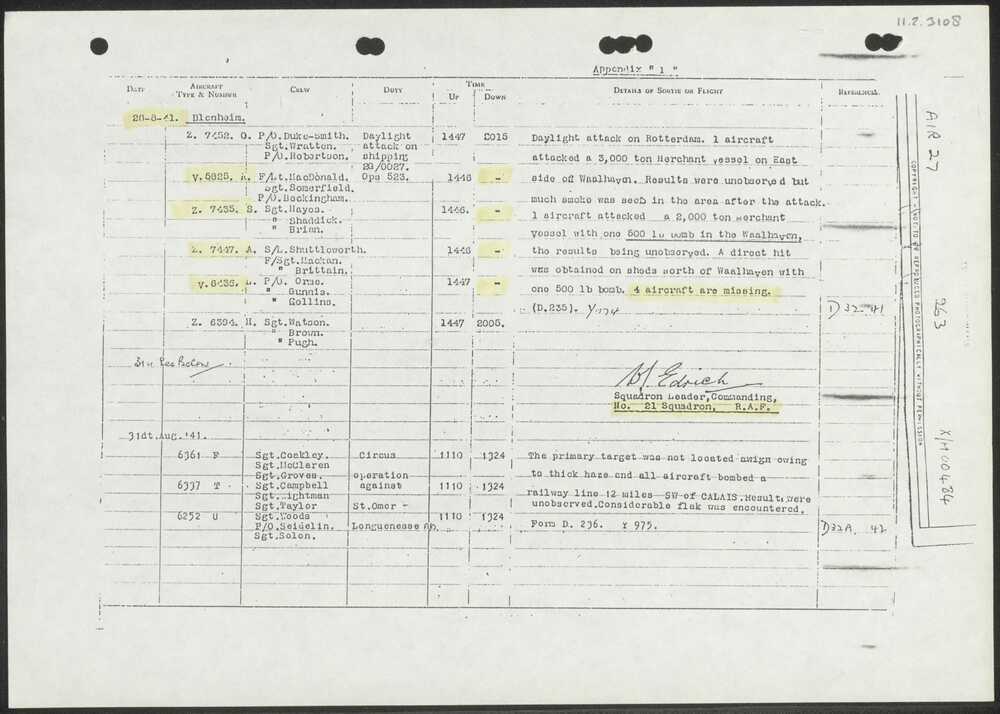 11.2.3108
Appendix "1"
Date Aircraft Type & Number Crew Duty Time Up Down Details of Sortie or Flight References
28-8-41. Blenheim.
Z. 7452. O. P/O. Duke-Smith. Daylight 1447 2015 Daylight attack on Rotterdam. 1 aircraft
Sgt. Wratton. attack on
P/O. Robertson. shipping attacked a 3,000 ton Merchant vessel on East
28/0827.
F/Lt. MacDonald. Ops 523. 1446 - side off Waalhaven. Results were unobserved but
Sgt. Somerfield.
P/O. Beckingham. much smoke was seen in the area after the attack.
Z. 7435. S. Sgt. Hayes. 1446. -
" Shaddick. 1 aircraft attacked a 2,000 ton merchant
" Brian. vessel with one 500 lb bomb in the Waalhaven,
Z. 7447. A. S/L. Shuttleworth. 1446 - the results being unobserved. A direct hit
F/Sgt.
" Brittain. was obtained on sheds North of Waalhaven with
V. 6436. P/O. Orme. 1447 - one 500 lb bomb. 4 aircraft are missing.
" Gunnis.
" Rollins. (D.235). D32 41
Z. 6394. H. Sgt. Watson. 1447 2005.
" Brown.
" Pugh.
31st see below
Edrich
Squadron Leader, Commanding,
No. 21 Squadron, R.A.F.
31dt. Aug. '41.
6361 F Sgt. Coakley. Circus 1110 1324 The primary target was not located awign owing
Sgt. McCleren to thick haze and all aircraft bombed a
Sgt. Groves. operation
6337 T Sgt. Campbell against 1110 1324 railway line 12 miles SW of CALAIS. Results were
Sgt. Wightman unobserved. Considerable flak was encountered.
Sgt. Taylor St. Omer -
6252 U Sgt. Woods 1110 1324
P/O. Seidelin. Longuenesse Form D. 236. Y 975. D32A. 42
Sgt. Solon.
AIR 27
263
X/M00484
COPYRIGHT - NOT TO BE REPRODUCED PHOTOGRAPHICALLY WITHOUT PERMISSION